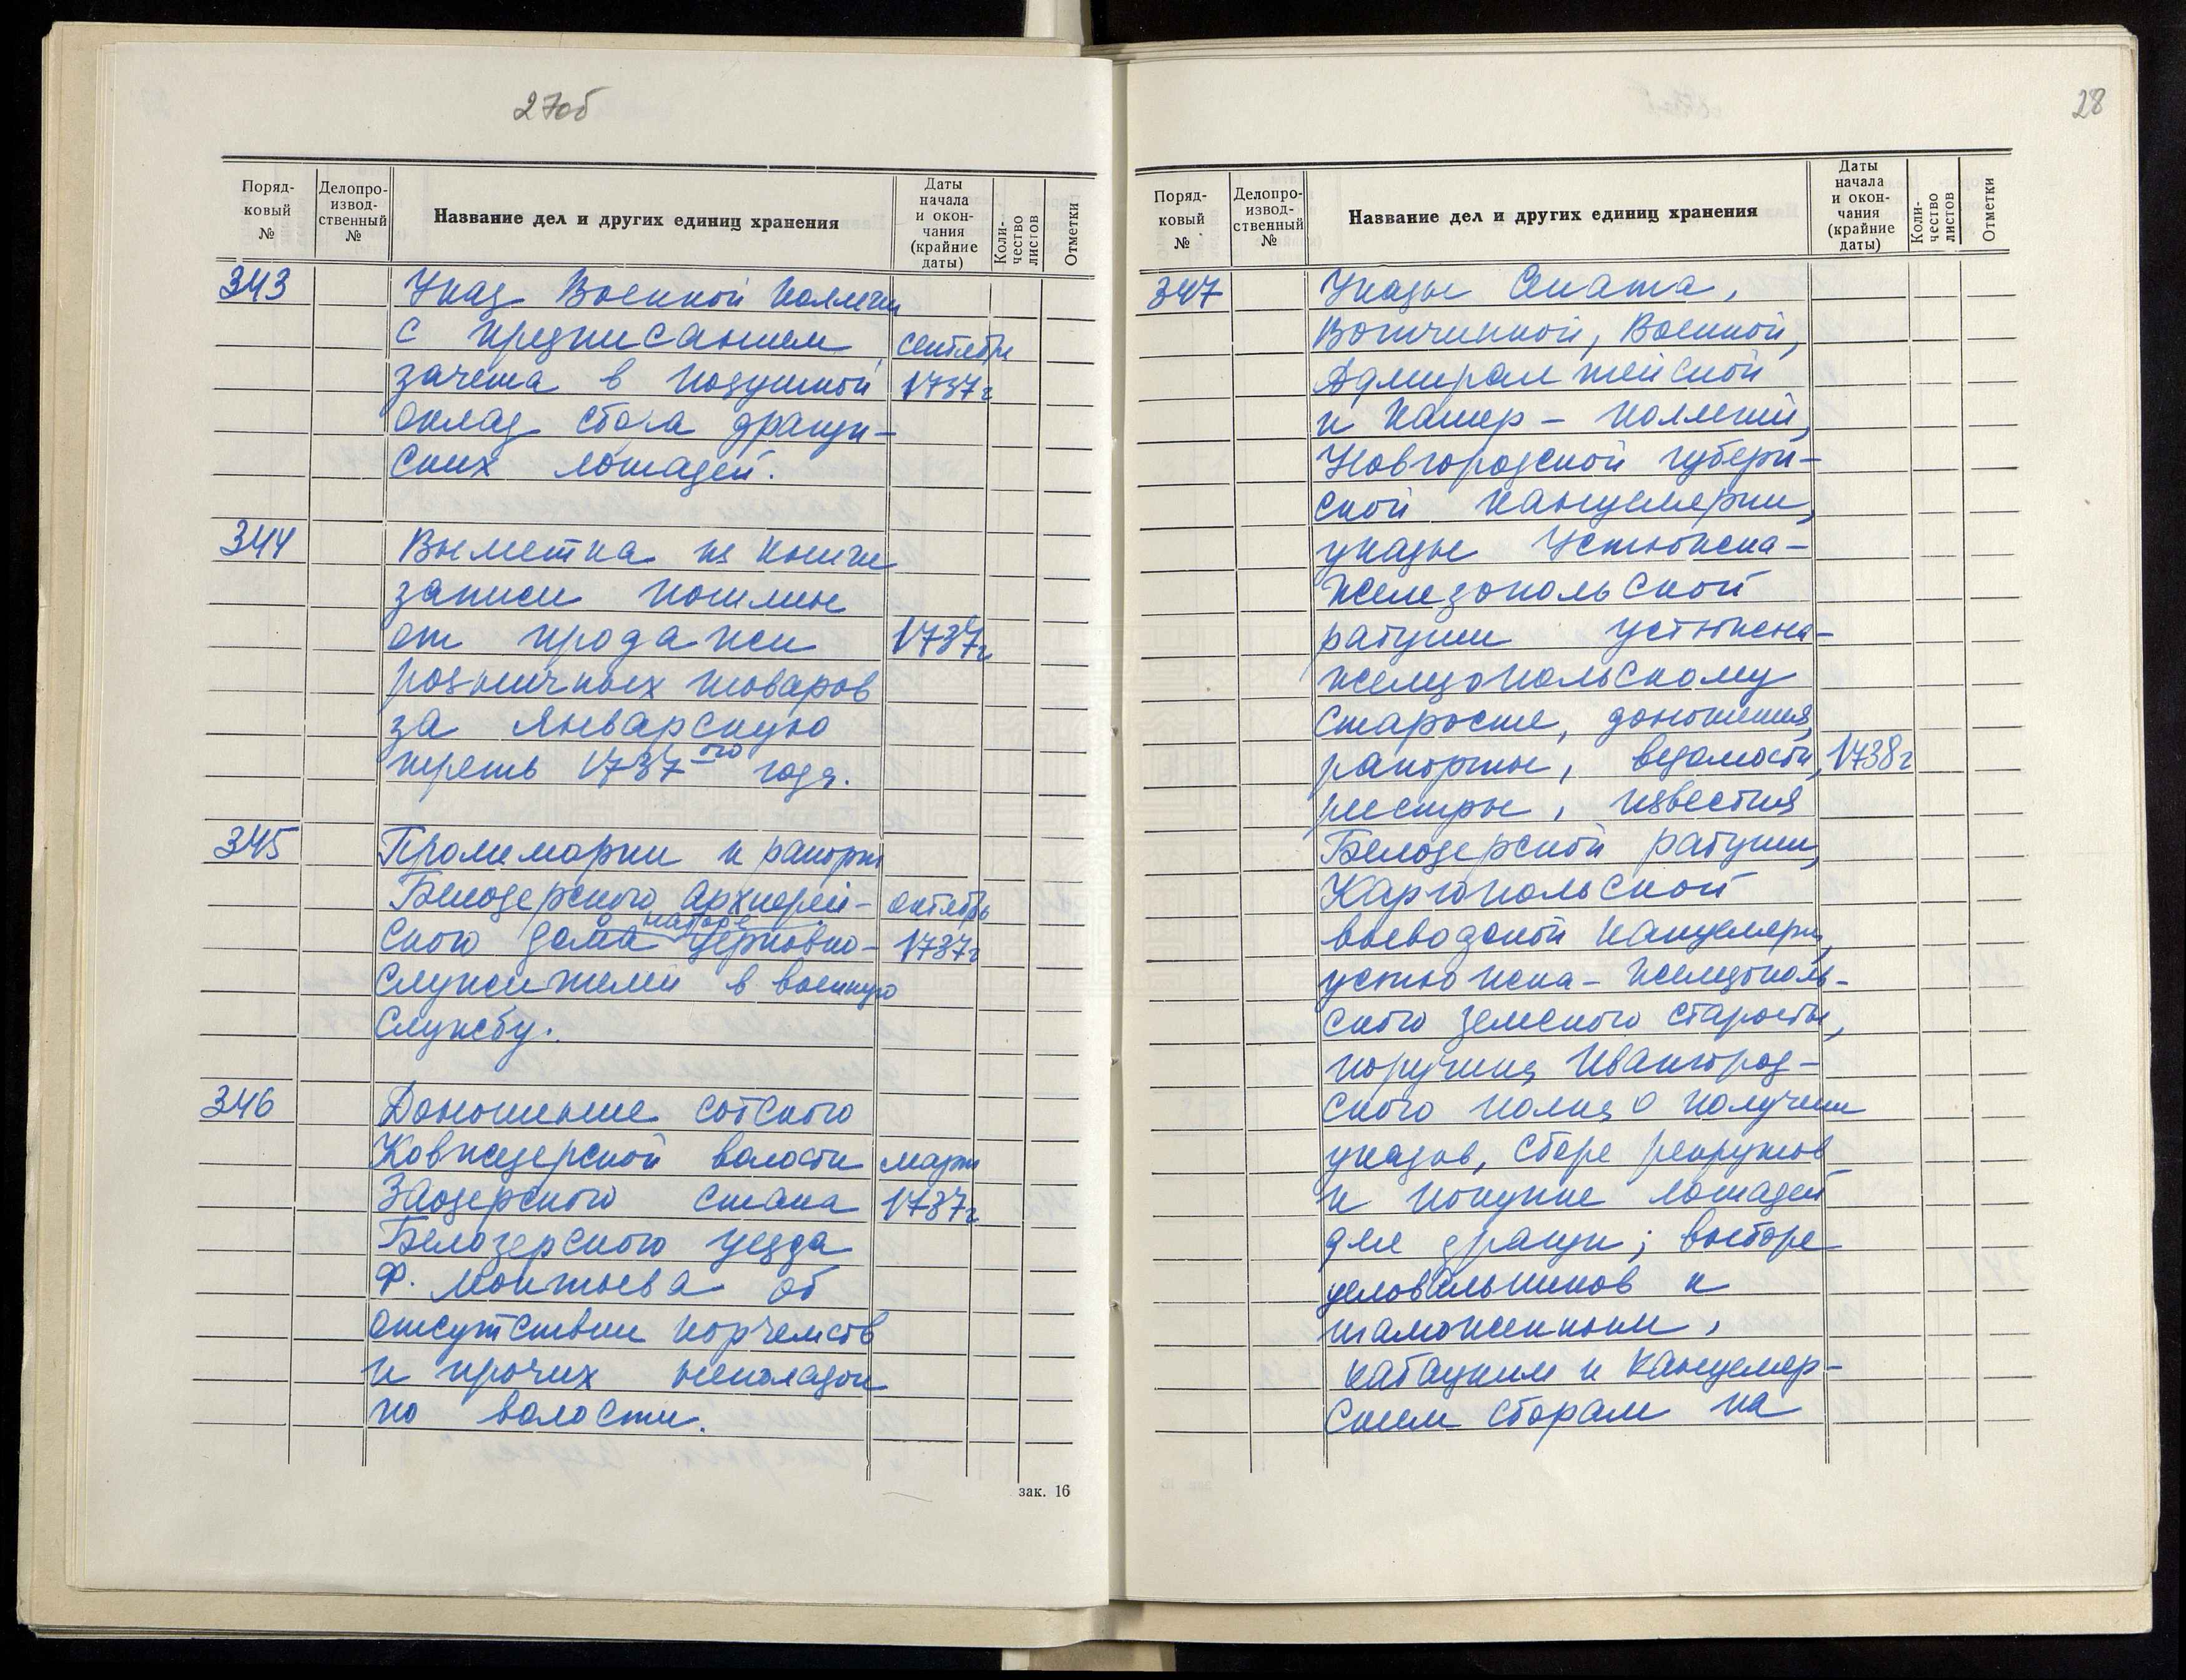 27об
Поряд-
ковый
№
Делопро-
извод-
ственный
№
Название дел и других единиц хранения
Даты
начала
и окон-
чания
(крайние
даты)
Коли-
чество
листов
Отметки
343
Указ Военной Коллегии
с предписанием
зачета в подушной
оклад сбора драгун-
ских лошадей.
сентябрь
1737г
344
Выметка из книги
записи пошлин
от продажи
розничных товаров
за январскую
треть 1737ого года.
1737г
345
Промемории и рапорты
Белозерского архиерей-
ского дома о наборе церковно-
служителей в военную
службу.
октябрь
1737г
346
Доношение сотского
Ковжезерской волости
Заозерского стана
Белозерского уезда
Ф. Монтьева об
отсутствии корчемств
и прочих неполадок
по волости.
март
1737г
зак. 16
28
Поряд-
ковый
№
Делопро-
извод-
ственный
№
Название дел и других единиц хранения
Даты
начала
и окон-
чания
(крайние
даты)
Коли-
чество
листов
Отметки
347
Указы Сената,
Вотчинной, Военной,
Адмиралтейской
и Камер-коллегий,
Новгородской губерн-
ской канцелярии,
указы Устюжска-
железопольской
ратуши устюжска-
желизопольскому
старосте, доношения,
рапорты, ведомости,
реестры, известия
Белозерской ратуши,
Каргопольской
воеводской канцелярии,
устюжска-желизополь-
ского земского старосты,
поручика Ивангород-
ского полка о получении
указов, сборе рекрутов
и покупке лошадей
для драгун; выборе
целовальников к
таможенным,
кабацким и канцеляр-
ским сборам на
1738г